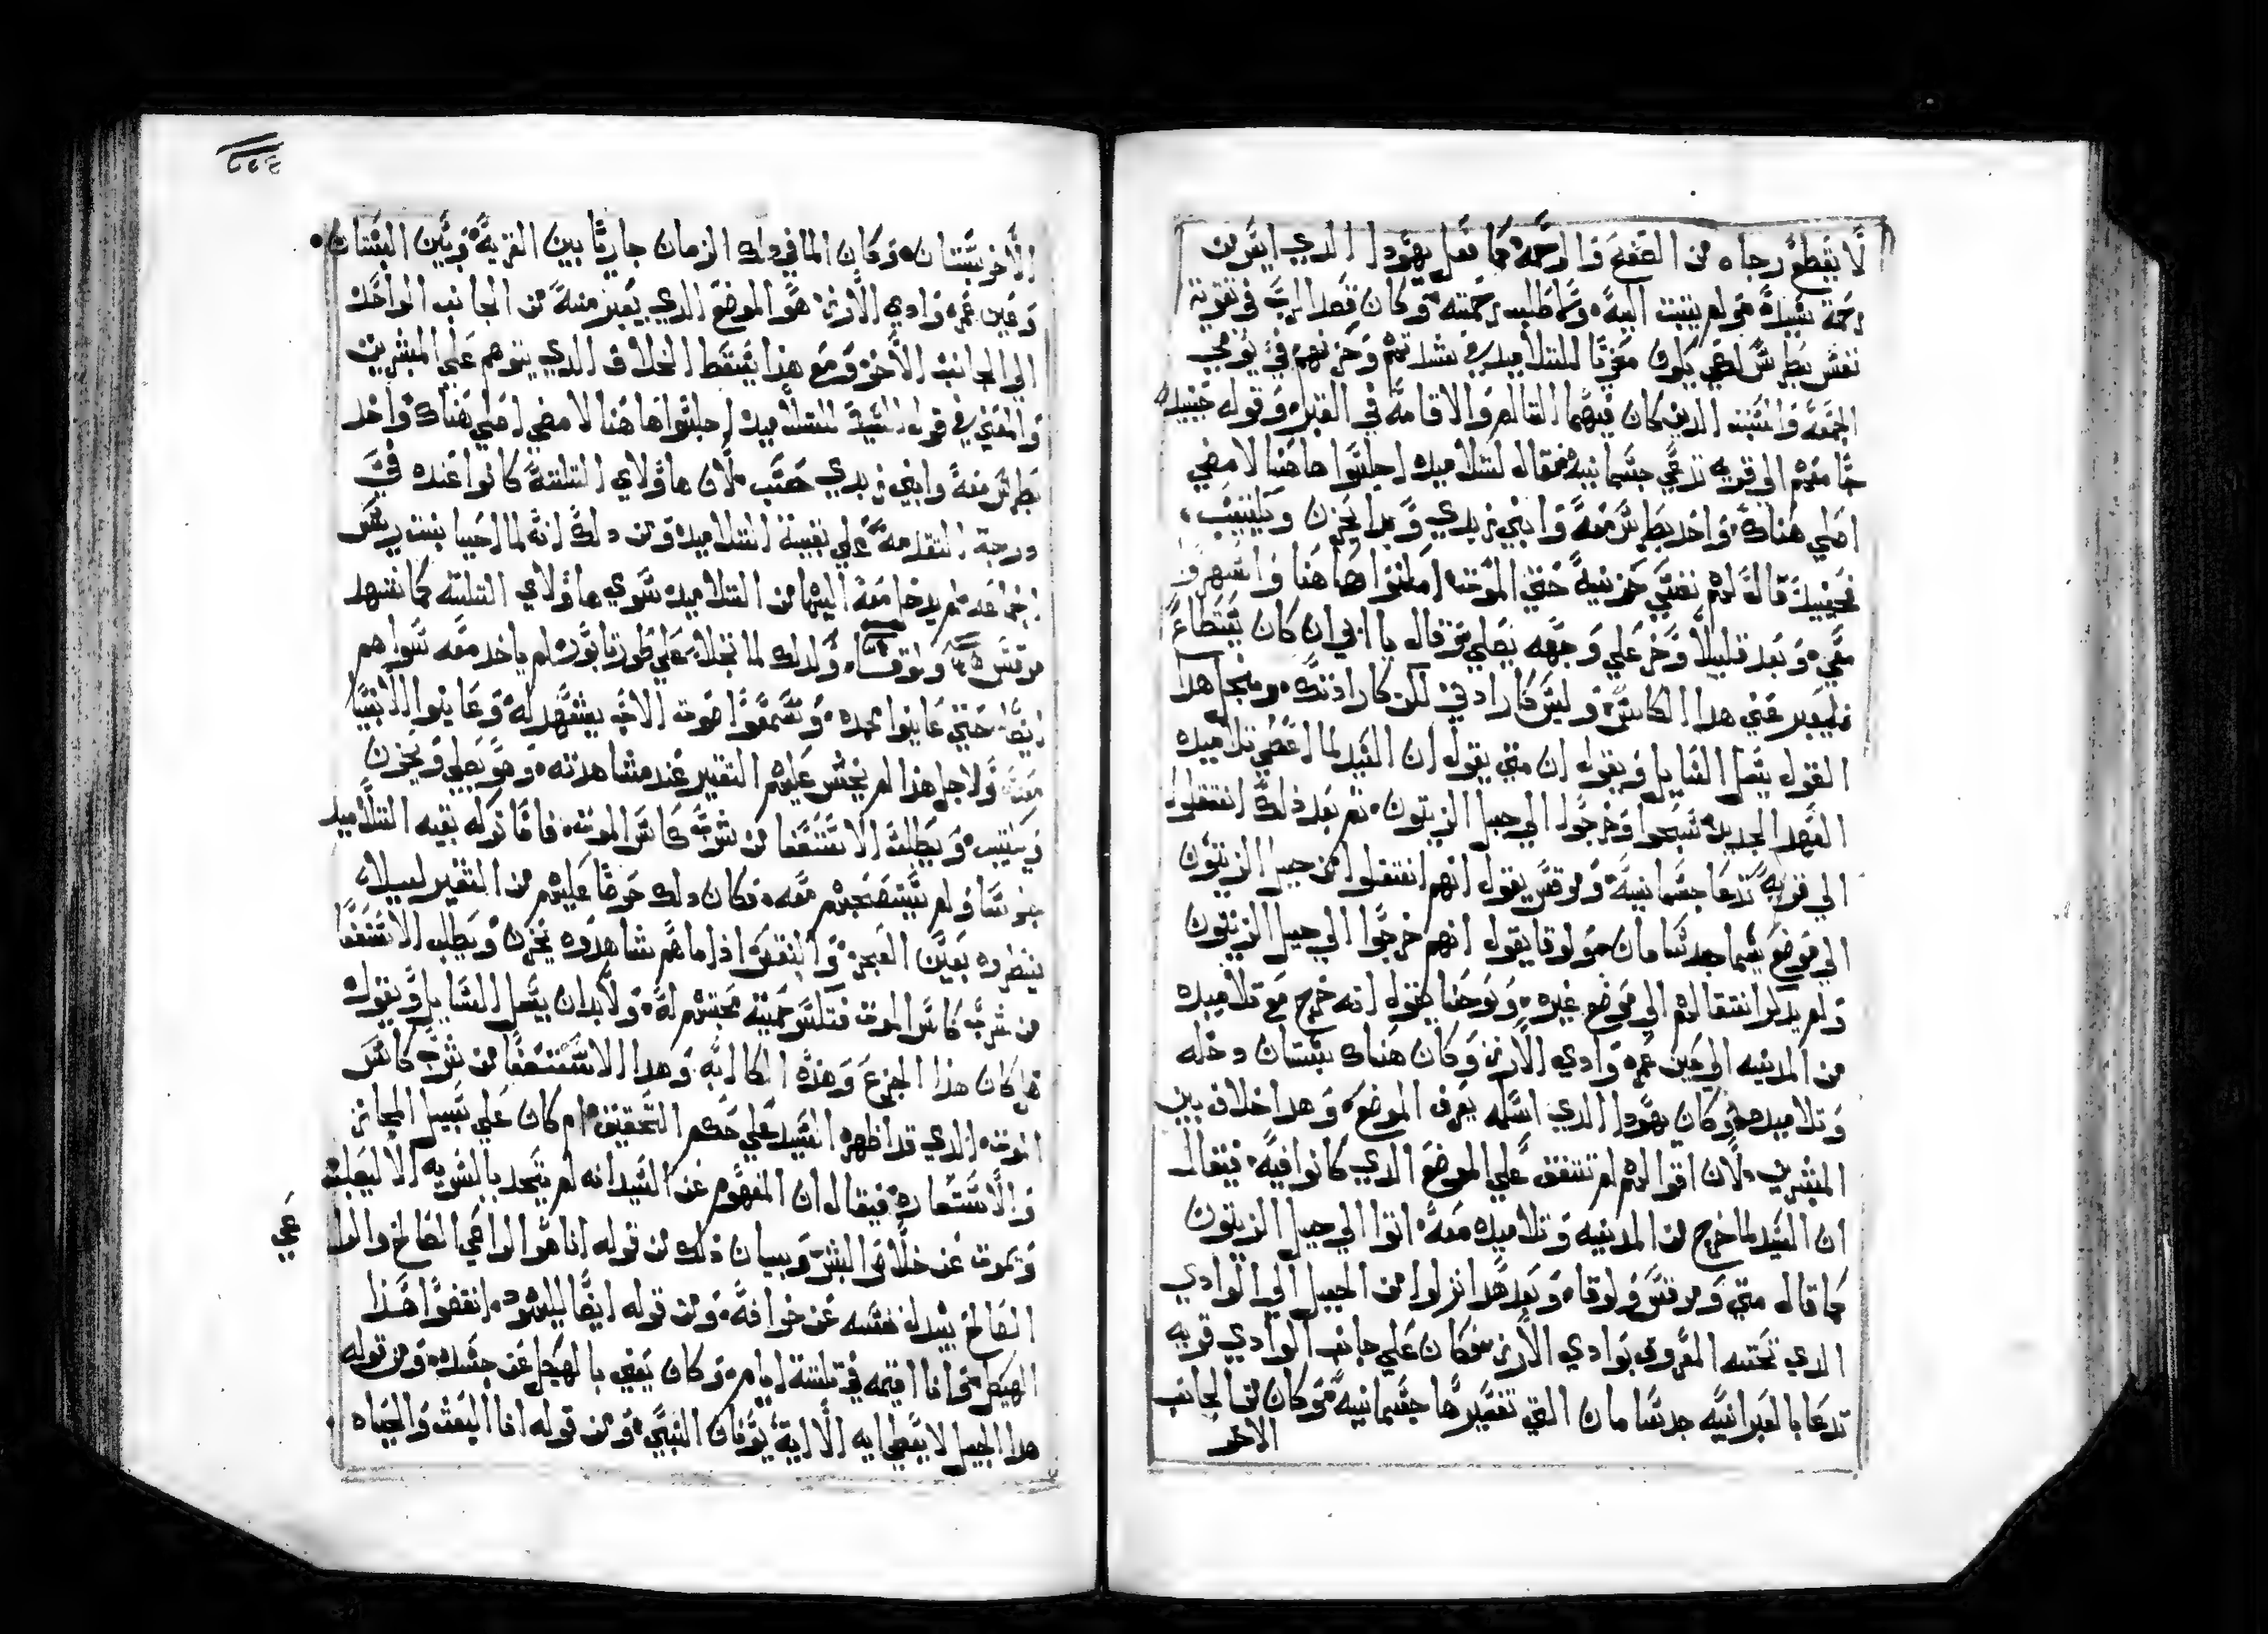 لا يقطع رجاه من الصفح والرحمة كما فعل يهودا الدي ايس من
رحمة سيده ولم يتبت اليه ولا طلب رحمته وكان قصد الرب في تقوية
نفس بطرس لكي يكون معزيا للتلاميد في شدتهم وحزنهم في يومي
الجمعة والسبت الدين كان فيهما التالم والاقامة في القبر وقوله حينيد
جا معهم الي قريه تدعي جسمانيه فقال لتلاميده اجلسوا هاهنا لامضي
اصلي هناك واخد بطرس معه وابني زبدي وبدا يحزن ويكتيب
فحينيد قال لهم نفسي حزينة حتي الموت امكتوا هاهنا واسهروا
معي وبعد قليلا وخر علي وجهه يصلي وقال يا ابي ان كان يستطاع
فليعبر عني هدا الكاس وليس كارادتي لكن كارادتك ومن اجل هدا
القول يسل السايل ويقول ان متي يقول ان السيد لما اعطي تلاميده
العهد الجديد سبحوا وخرجوا الي جبل الزيتون ثم بعد ذلك انتقلوا
الي قريه تدعا جسمانية ومرقس يقول انهم انتقلوا من جبل الزيتون
الي موضع يسما جدسامان ولوقا يقول انهم خرجوا الي جبل الزيتون
ولم يدكر انتقالهم الي موضع غيره ويوحنا يقول انه خرج مع تلاميده
من المدينه الي عبر وادي الارز وكان هناك بستان دخله
وتلاميده وكان يهودا الدي اسلمه يعرف الموضع وهدا خلاف بين
المبشرين لان اقوالهم لم تتفق علي الموضع الدي كانوا فيه فيقال
ان السيد لما خرج من المدينه وتلاميده معه اتوا الي جبل الزيتون
كما قال متي ومرقس ولوقا وبعد هدا نزلوا من الجبل الي الوادي
الدي تحته المعروف بوادي الارز وكان علي جانب الوادي قريه
تدعا بالعبرانيه جدسامان التي تفسيرها جسمانية وكان من الجانب
الاخر
٢٢٤
الاخر بستان وكان الما في دلك الزمان جاريا بين القرية وبين البستان
وعبر وادي الارز هو الموضع الدي يعبر منه من الجانب الواحد
الي الجانب الاخر ومع هدا يسقط الخلاف الدي يتوهم علي المبشرين
والمعني في قول السيد للتلاميد اجلسوا هاهنا لامضي اصلي هناك واخد
بطرس معه وابني زبدي حسب لان هاولاي التلتة كانوا عنده في
درجة التقدمة علي بقية التلاميد ومن دلك انه لما احيا بنت ريس
الجماعه لم يدخل معه اليها من التلاميد سوي هاولاي التلته كما شهد
مرقس ولوقا ولدلك لما تجلا علي طور تابور لم ياخد معه سواهم
ايضا حتي عاينوا مجده وسمعوا صوت الاب يشهد له وعاينوا الانبيا
معه ولاجل هدا لم يخش عليهم التغير عند مشاهدته وهو يصلي ويحزن
ويكتيب ويطلب الاستعفا من شرب كاس الموت فاما تركه بقيه التلاميد
جلوسا ولم يستصحبهم معه فكان دلك خوفا عليهم من التغير ليلا
ينظروه بعين العجز والنقص اذا ما هم شاهدوه يحزن ويطلب الاستعفا
من شرب كاس الموت محبتهم له ولابد ان يسل السايل ويقول
هل كان هذا الجزع وهذه الكابه وهدا الاستعفا من شرب كاس
الموت الدي قد اظهره السيد علي حكم التحقيق ام كان علي سبيل المجاز
والاستعاره فيقال ان المفهوم عن السيد انه لم يتحد بالبشريه الا ليصلب
ويموت عن خلاص البشر وبيان ذلك من قوله انا هو الراعي الصالح والراعي
الصالح يبدل نفسه عن خرافه ومن قوله ايضا لليهود انقضوا هدا
الهيكل وانا اقيمه في تلتة ايام وكان يعني بالهيكل عن جسده ومن قوله
هدا الجيل لا يعطا ايه الا اية يونان النبي ومن قوله انا البعث والحياه